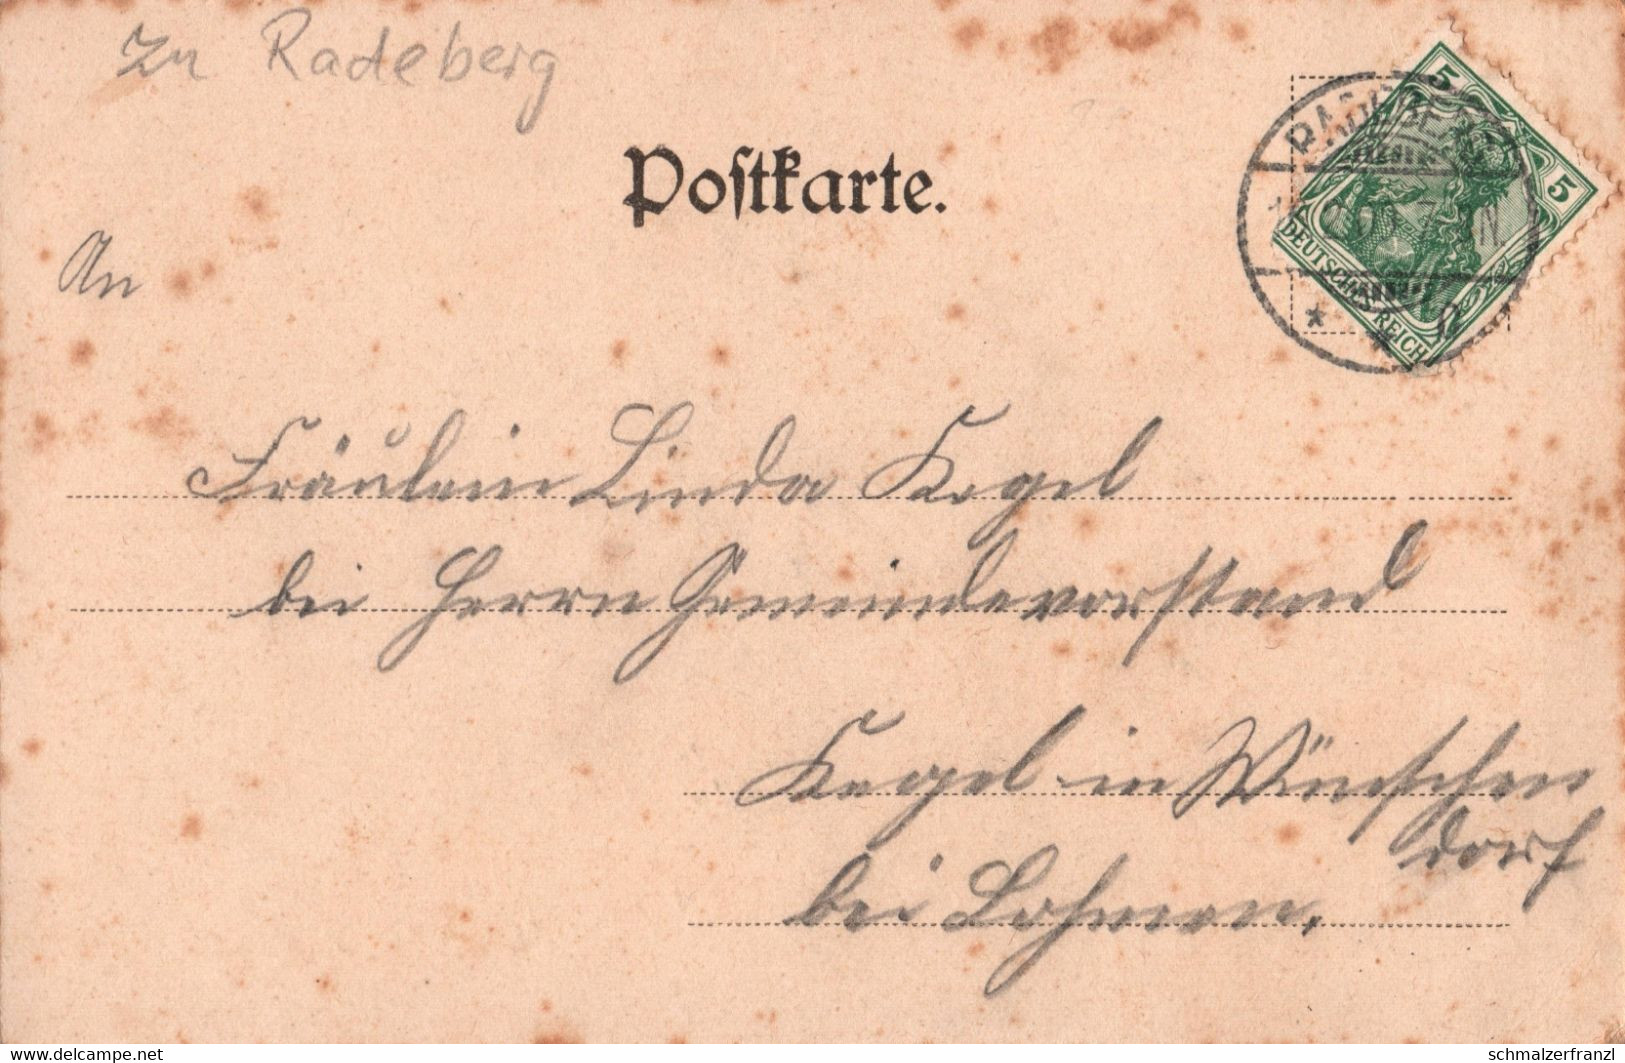 Zu Radeberg
Postkarte.
5
5
DEUTSCHES REICH
An
Fräulein Linda Kegel
bei Herrn Gemeindevorstand
Kegel in Wünschen
dorf
bei Lohmen.
www.delcampe.net
schmalzerfranzl